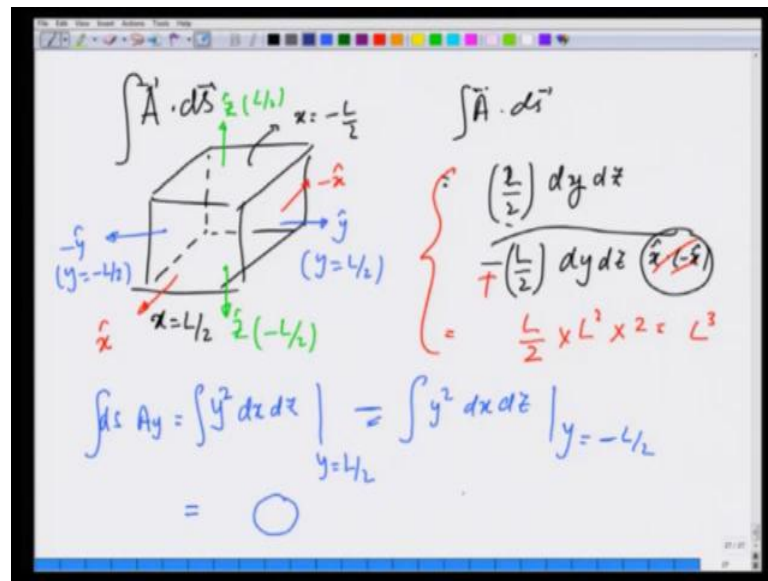 File Edit View Insert Actions Tools Help
∫A⃗·ds⃗
ẑ(L/2)
x = -L/2
-x̂
-ŷ
(y=-L/2)
ŷ
(y=L/2)
x̂
x=L/2
ẑ(-L/2)
∫A⃗·ds⃗
= (L/2) dy dz
+(L/2) dy dz (x̂·(-x̂))
= L/2 × L² × 2 = L³
∫ds Ay = ∫y² dx dz |y=L/2 = ∫y² dx dz |y=-L/2
= 0
27/27